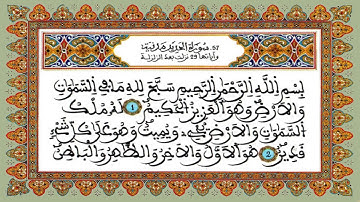 57. سُورَةُ الْحَدِيدِ مَدَنِيَّة
وَآيَاتُهَا 29 نَزَلَتْ بَعْدَ الزَّلْزَلَةِ
بِسْمِ اِللَّهِ اِلرَّحْمَٰنِ اِلرَّحِيمِ سَبَّحَ لِلهِ مَا فِے اِلسَّمَٰوَٰتِ
وَالَارْضِ وَهُوَ اَلْعَزِيزُ اُلْحَكِيمُ 1 لَهُۥ مُلْكُ
اُلسَّمَٰوَٰتِ وَالَارْضِ يُحْيِۦ وَيُمِيتُ وَهُوَ عَلَىٰ كُلِّ شَےْءٖ
قَدِيرٌ 2 هُوَ اَلَاوَّلُ وَالَاخِرُ وَالظَّٰهِرُ وَالْبَاطِنُ